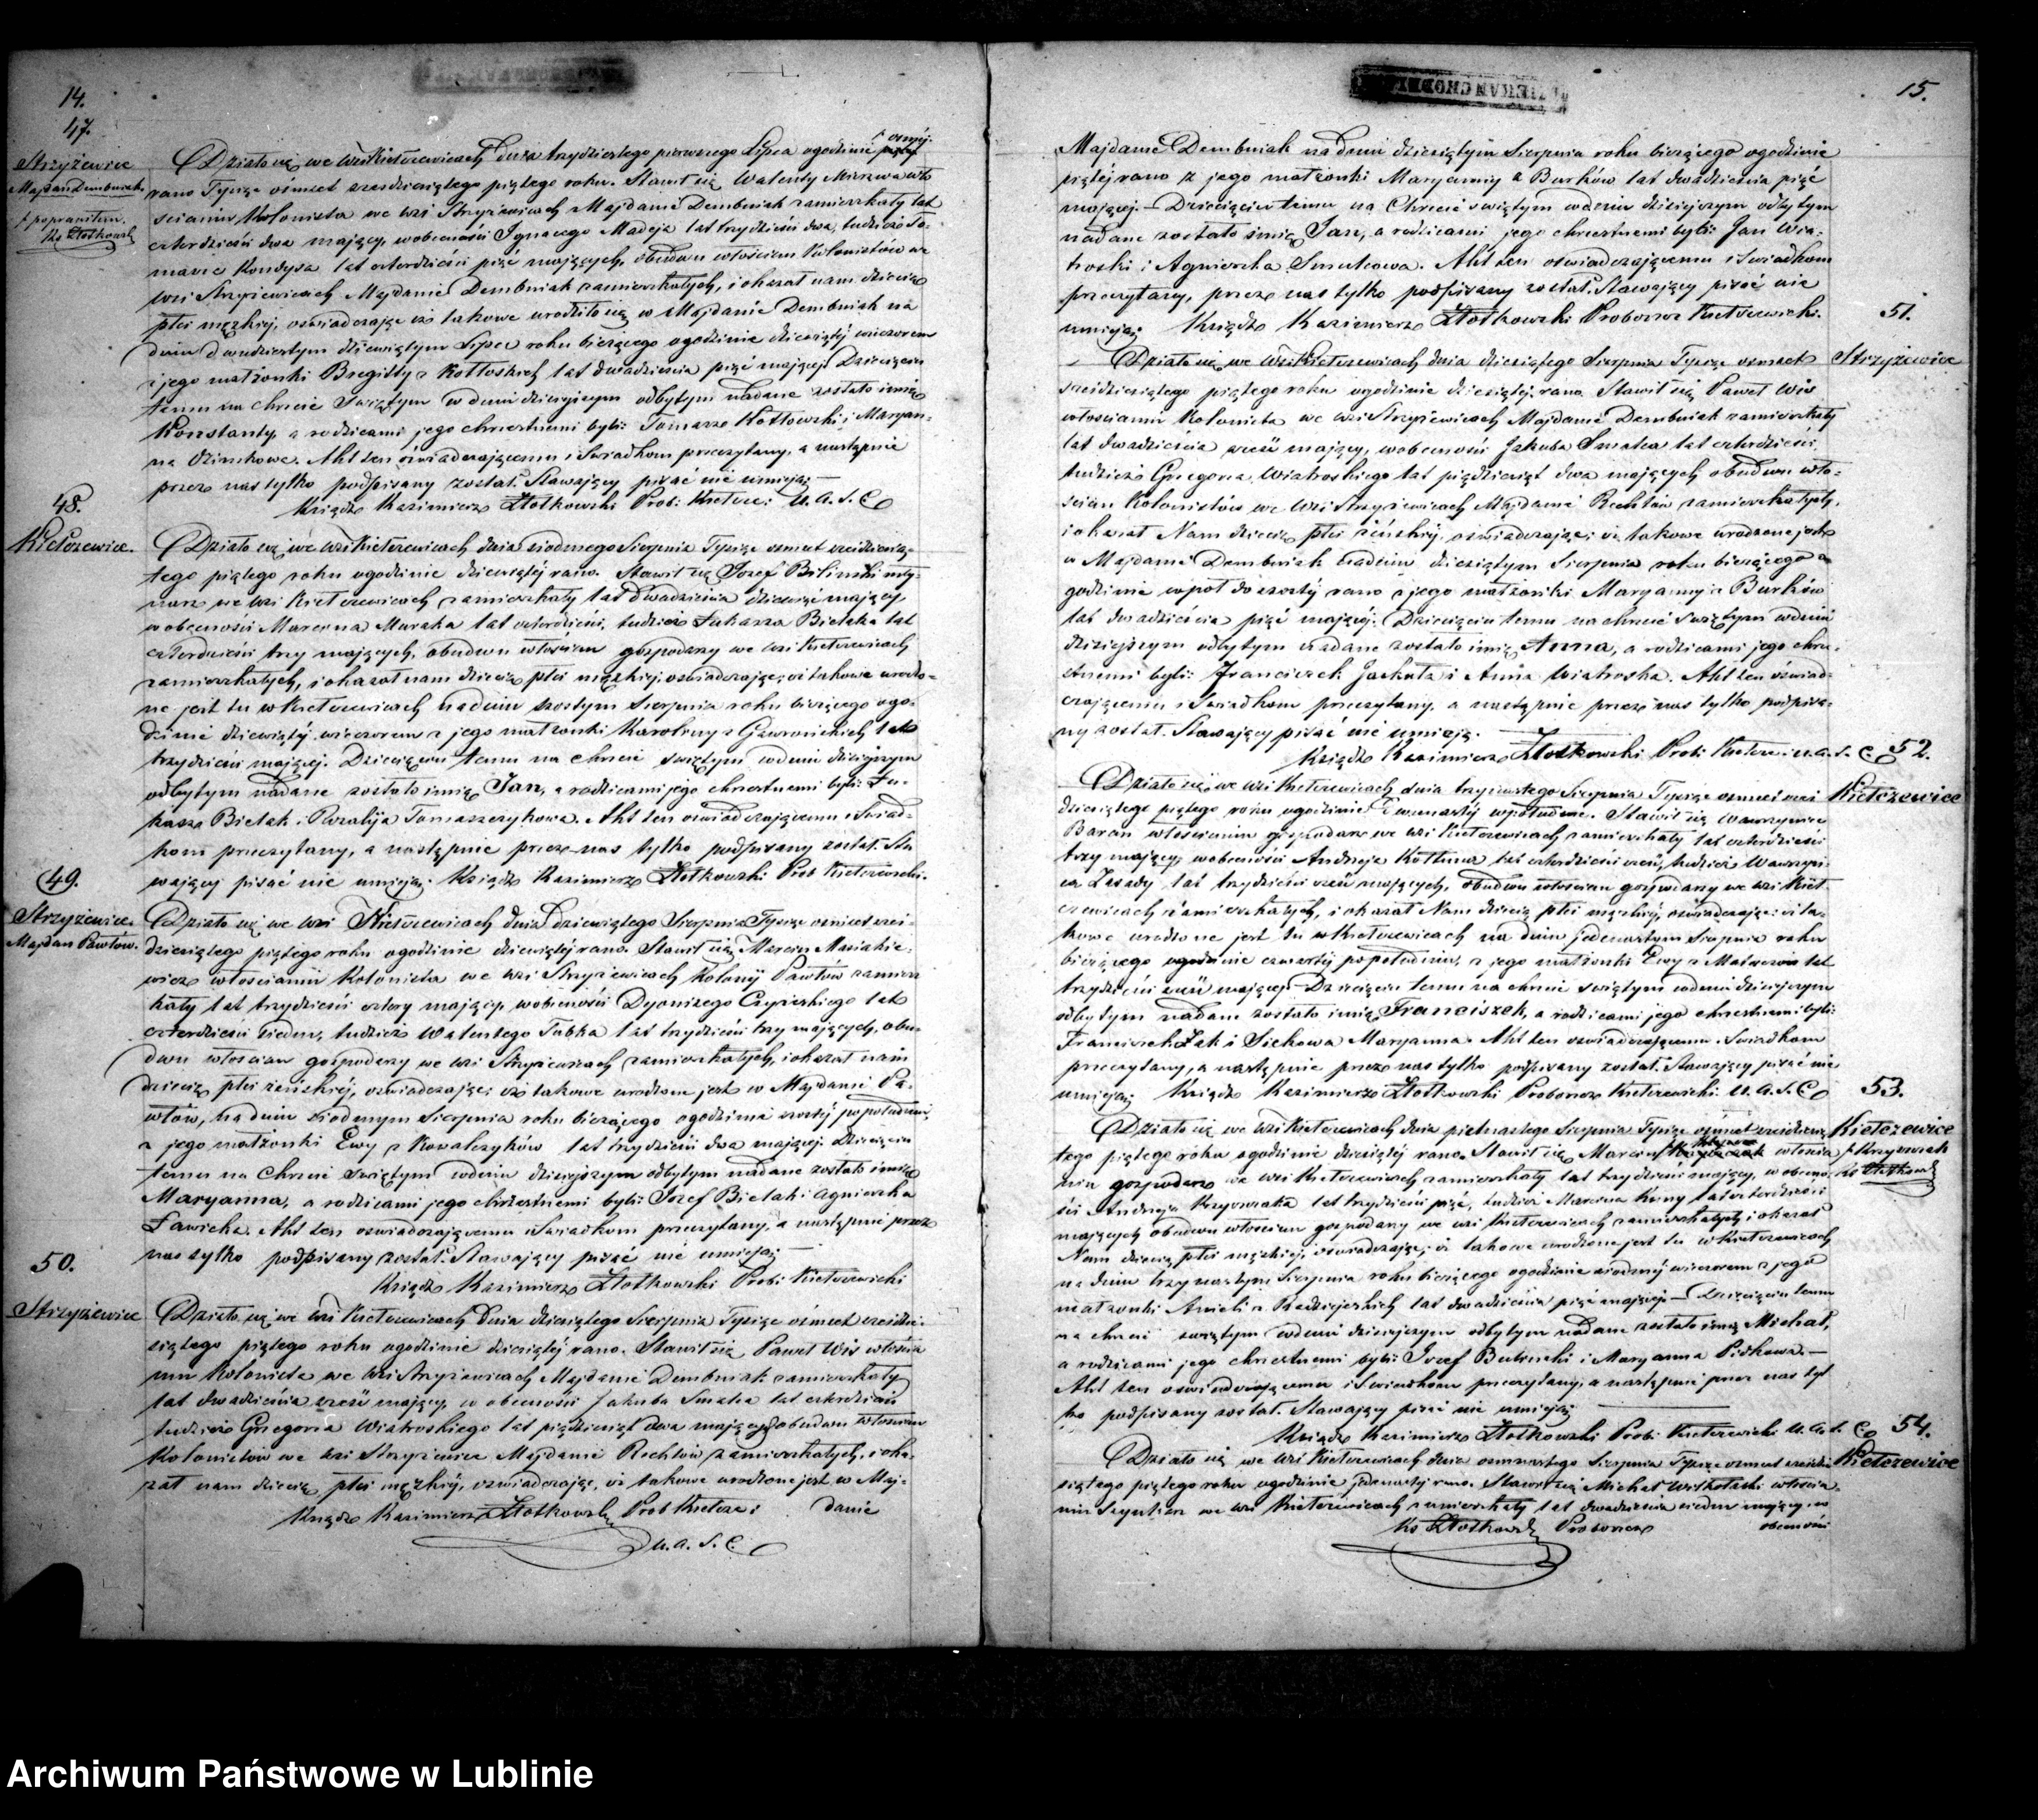 14.
47.
Strzyżewice
Majdan Dembniak
† poprawiłem.
Ks Złotkowski
† ósmej
Działo się we Wsi Kiełczewicach dnia trzydziestego pierwszego Lipca o godzinie piątej
rano Tysiąc ośmset sześćdziesiątego piątego roku. Stawił się Walenty Mierzwa wło
ścianin Kolonista we wsi Strzyżewicach Majdanie Dembniak zamieszkały lat
czterdzieści dwa mający, w obecności Ignacego Madeja lat trzydzieści dwa, tudzież To-
masza Kondysa lat czterdzieści pięć mających, obudwu włościan Kolonistów we
wsi Strzyżewicach Majdanie Dembniak zamieszkałych, i okazał nam dziecię
płci męzkiej, oświadczając iż takowe urodziło się w Majdanie Dembniak na
dniu dwudziestym dziewiątym Lipca roku bieżącego o godzinie dziesiątej wieczorem
z jego małżonki Brygitty z Kottoskich lat dwadzieścia pięć mającej Dziecięciu
temu na chrcie Świętym w dniu dzisiejszym odbytym nadane zostało imię
Konstanty, a rodzicami jego chrzestnemi byli: Tomasz Kotłowski i Maryan-
na Dzinkowa. Akt ten oświadczającemu i Świadkom przeczytany, a następnie
przez nas tylko podpisany został. Stawający pisać nie umieją.
Ksiądz Kazimierz Złotkowski Prob: Kiełcz: U. A. S. C
48.
Kiełczewice.
Działo się we wsi Kiełczewicach dnia siódmego Sierpnia Tysiąc ośmset sześćdziesią-
tego piątego roku o godzinie dziewiątej rano. Stawił się Józef Biliński mły-
narz we wsi Kiełczewicach zamieszkały lat dwadzieścia dziewięć mający
w obecności Marcina Muraka lat czterdzieści, tudzież Łukasza Bielaka lat
czterdzieści trzy mających, obudwu włościan gospodarzy we wsi Kiełczewicach
zamieszkałych, i okazał nam dziecię płci męzkiej, oświadczając iż takowe urodzo-
ne jest tu w Kiełczewicach na dniu szóstym Sierpnia roku bieżącego o go-
dzinie dziewiątej wieczorem z jego małżonki Karoliny z Gawrońskich lat
trzydzieści mającej. Dziecięciu temu na chrcie świętym w dniu dzisiejszym
odbytym nadane zostało imię Jan, a rodzicami jego chrzestnemi byli: Łu-
kasz Bielak i Rozalija Tomaszczykowa. Akt ten oświadczającemu i Świad-
kom przeczytany, a następnie przez nas tylko podpisany został. Sta
wający pisać nie umieją. Ksiądz Kazimierz Złotkowski Prob Kiełczewicki.
49.
Strzyżewice.
Majdan Pawłów.
Działo się we wsi Kiełczewicach dnia Dziewiątego Sierpnia Tysiąc ośmset sześć-
dziesiątego piątego roku o godzinie dziewiątej rano. Stawił się Marcin Masiakie-
wicz włościanin Kolonista we wsi Strzyżewicach Kolonij Pawłów zamiesz
kały lat trzydzieści cztery mający, w obecności Dyonizego lat
czterdzieści siedm, tudzież Walentego Tabka lat trzydzieści trzy mających, obu-
dwu włościan gospodarzy we wsi Strzyżewicach zamieszkałych, i okazał nam
dziecię płci żeńskiej, oświadczając iż takowe urodzone jest w Majdanie Pa-
włów, na dniu siódmym Sierpnia roku bieżącego o godzinie szóstej po południu,
z jego małżonki Ewy z Kowalczyków lat trzydzieści dwa mającej. Dziecięciu
temu na Chrcie Świętym w dniu dzisiejszym odbytym nadane zostało imię
Maryanna, a rodzicami jego chrzestnemi byli: Józef Bielak i Agnieszka
Ławicka. Akt ten oświadczającemu i Świadkom przeczytany, a następnie przez
nas tylko podpisany został. Stawający pisać nie umieją.
Ksiądz Kazimierz Złotkowski Prob: Kiełczewicki
50.
Strzyżewice
Działo się we Wsi Kiełczewicach Dnia dziesiątego Sierpnia Tysiąc ośmset sześćdzie-
siątego piątego roku o godzinie dziesiątej rano. Stawił się Paweł Wiś włościa
nin Kolonista we wsi Strzyżewicach Majdanie Dembniak zamieszkały
lat dwadzieścia sześć mający, w obecności Jakuba Smalca lat czterdzieści
tudzież Grzegorza Wiatroskiego lat pięćdziesiąt dwa mających obudwu włościan
Kolonistów we wsi Strzyżewice Majdanie Rechtów zamieszkałych, i oka-
zał nam dziecię płci męzkiej, oświadczając, iż takowe urodzone jest w Maj-
Ksiądz Kazimierz Złotkowski Prob Kiełcze: danie
u. a. s. C.
15.
Majdanie Dembniak na dniu dziesiątym Sierpnia roku bieżącego o godzinie
piątej rano z jego małżonki Maryanny z Burków lat dwadzieścia pięć
mającej. – Dziecięciu temu na Chrcie świętym w dniu dzisiejszym odbytym
nadane zostało imię Jan, a rodzicami jego chrzestnemi byli: Jan Wia-
troski i Agnieszka Smalcowa. Akt ten oświadczającemu i Świadkom
przeczytany, przez nas tylko podpisany został. Stawający pisać nie
umieją. Ksiądz Kazimierz Złotkowski Proboszcz Kiełczewicki.
51.
Strzyżewice
Działo się we Wsi Kiełczewicach dnia dziesiątego Sierpnia Tysiąc ośmset
sześćdziesiątego piątego roku o godzinie dziesiątej rano. Stawił się Paweł Wiś
włościanin Kolonista we wsi Strzyżewicach Majdanie Dembniak zamieszkały
lat dwadzieścia sześć mający, w obecności Jakuba Smalca lat czterdzieści
tudzież Grzegorza Wiatroskiego lat pięćdziesiąt dwa mających obudwu wło-
ścian Kolonistów we wsi Strzyżewicach Majdanie Rechtów zamieszkałych,
i okazał Nam dziecię płci żeńskiej, oświadczając, iż takowe urodzone jest
w Majdanie Dembniak na dniu dziesiątym Sierpnia roku bieżącego o
godzinie wpół do szóstej rano z jego małżonki Maryanny z Burków
lat dwadzieścia pięć mającej. Dziecięciu temu na chrcie Świętym w dniu
dzisiejszym odbytym nadane zostało imię Anna, a rodzicami jego chrze-
stnemi byli: Franciszek Jackuła i Anna Wiatroska. Akt ten oświad-
czającemu i Świadkom przeczytany, a następnie przez nas tylko podpisa-
ny został. Stawający pisać nie umieją.
Ksiądz Kazimierz Złotkowski Prob: Kiełcze: u. a. s. C
52.
Kiełczewice
Działo się we wsi Kiełczewicach dnia trzynastego Sierpnia Tysiąc ośmset sześć
dziesiątego piątego roku o godzinie Dwunastej w południe. Stawił się Wawrzyniec
Baran włościanin gospodarz we wsi Kiełczewicach zamieszkały lat czterdzieści
trzy mający, w obecności Andrzeja Kottuna lat czterdzieści sześć, tudzież Wawrzyń-
ca Zasady lat trzydzieści sześć mających, obudwu włościan gospodarzy we wsi Kieł-
czewicach zamieszkałych, i okazał Nam dziecię płci męzkiej, oświadczając: iż ta-
kowe urodzone jest tu w Kiełczewicach na dniu jedenastym Sierpnia roku
bieżącego o godzinie czwartej po południu, z jego małżonki Ewy z lat
trzydzieści sześć mającej. Dziecięciu temu na chrcie świętym w dniu dzisiejszym
odbytym nadane zostało imię Franciszek, a rodzicami jego chrzestnemi byli:
Franciszek Żak i Siekowa Maryanna. Akt ten oświadczającemu i Świadkom
przeczytany, a następnie przez nas tylko podpisany został. Stawający pisać nie
umieją. Ksiądz Kazimierz Złotkowski Proboszcz Kiełczewicki. U. A. S. C
53.
Kiełczewice
† Krzywniak
Ks Złotkowski
Działo się we wsi Kiełczewicach dnia piętnastego Sierpnia Tysiąc ośmset sześćdziesią
tego piątego roku o godzinie dziesiątej rano. Stawił się Marcin włościa
nin gospodarz we wsi Kiełczewicach zamieszkały lat trzydzieści mający, w obecno-
ści Andrzeja Krzywniaka lat trzydzieści pięć, tudzież Marcina lat czterdzieści
mających obudwu włościan gospodarzy we wsi Kiełczewicach zamieszkałych i okazał
Nam dziecię płci męzkiej, oświadczając, iż takowe urodzone jest tu w Kiełczewicach
na dniu trzynastym Sierpnia roku bieżącego o godzinie siódmej wieczorem z jego
małżonki Anieli z Radziejeskich lat dwadzieścia pięć mającej. – Dziecięciu temu
na chrcie świętym w dniu dzisiejszym odbytym nadane zostało imię Michał,
a rodzicami jego chrzestnemi byli: Józef i Maryanna Pidkowa. –
Akt ten oświadczającemu i Świadkom przeczytany, a następnie przez nas tyl
ko podpisany został. Stawający pisać nie umieją.
Ksiądz Kazimierz Złotkowski Prob: Kiełczewicki U. A. S. C
54.
Kiełczewice
Działo się we wsi Kiełczewicach dnia osmnastego Sierpnia Tysiąc ośmset sześćdzie
siątego piątego roku o godzinie jedenastej rano. Stawił się Michał włościa
nin we wsi Kiełczewicach zamieszkały lat dwadzieścia siedm mający, w
Ks Złotkowski Proboszcz obecności
Archiwum Państwowe w Lublinie